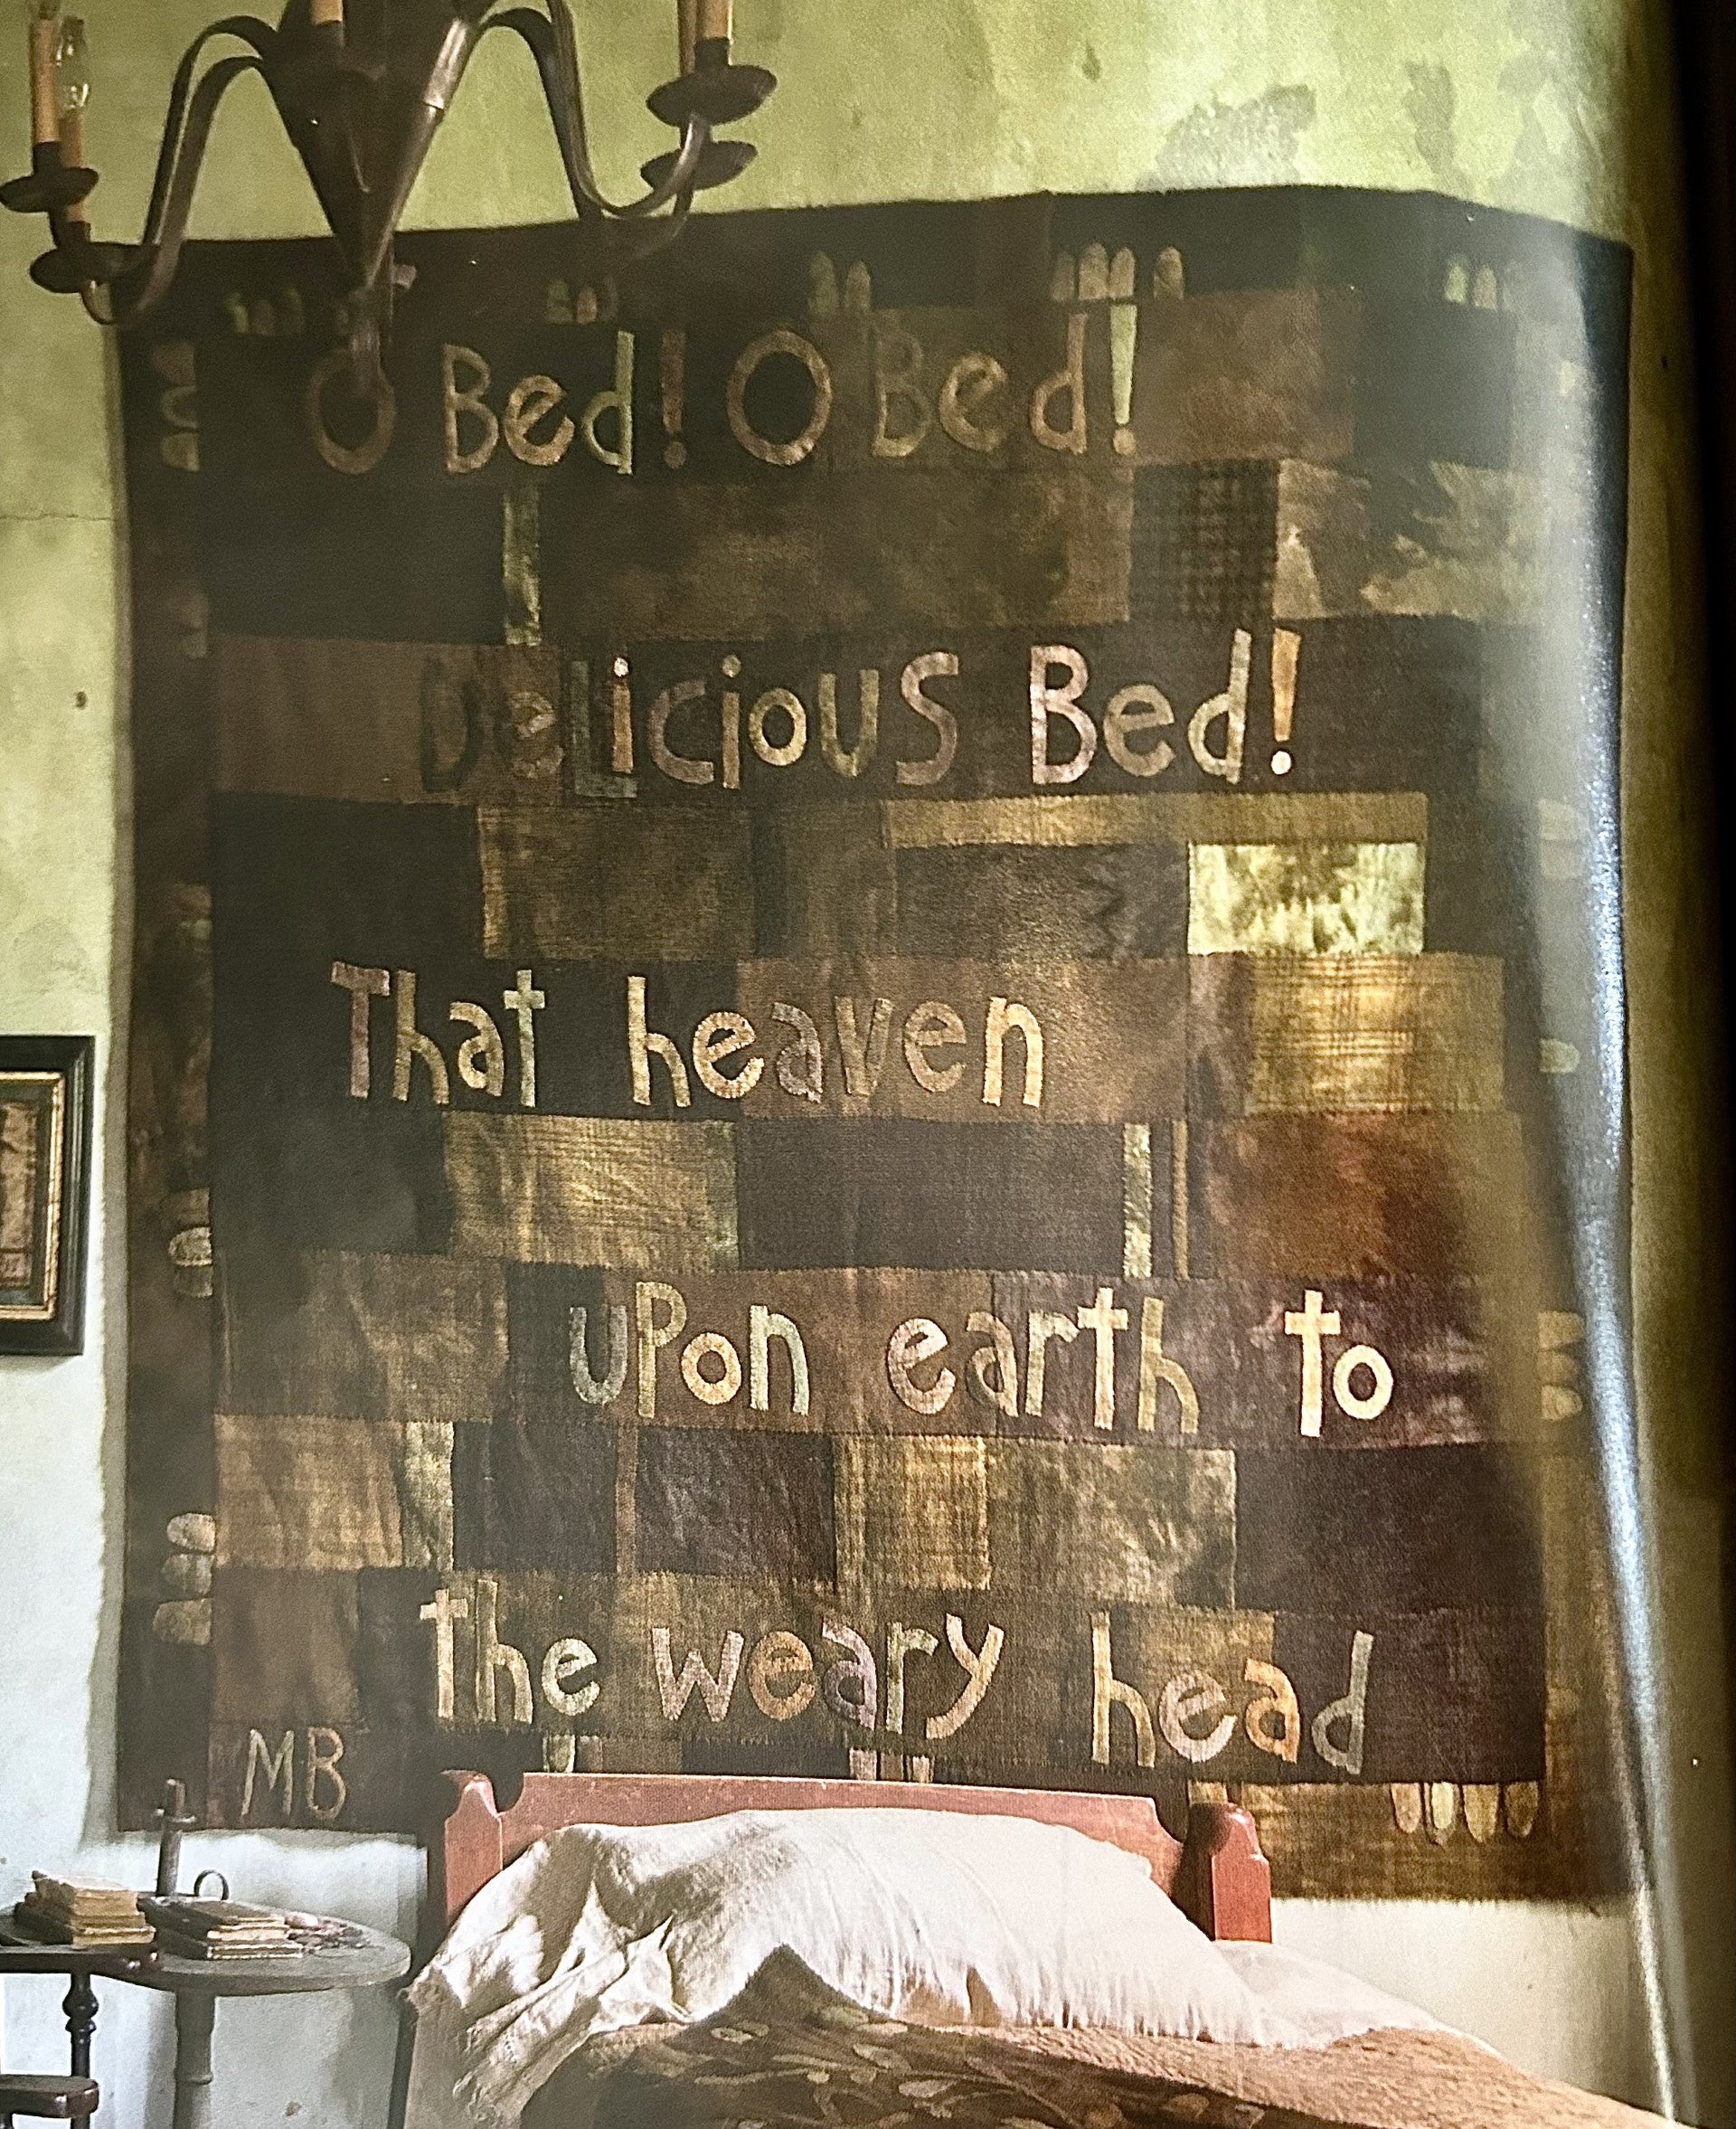 O Bed! O Bed!
DeLicious Bed!
That heaven
upon earth to
the weary head
MB